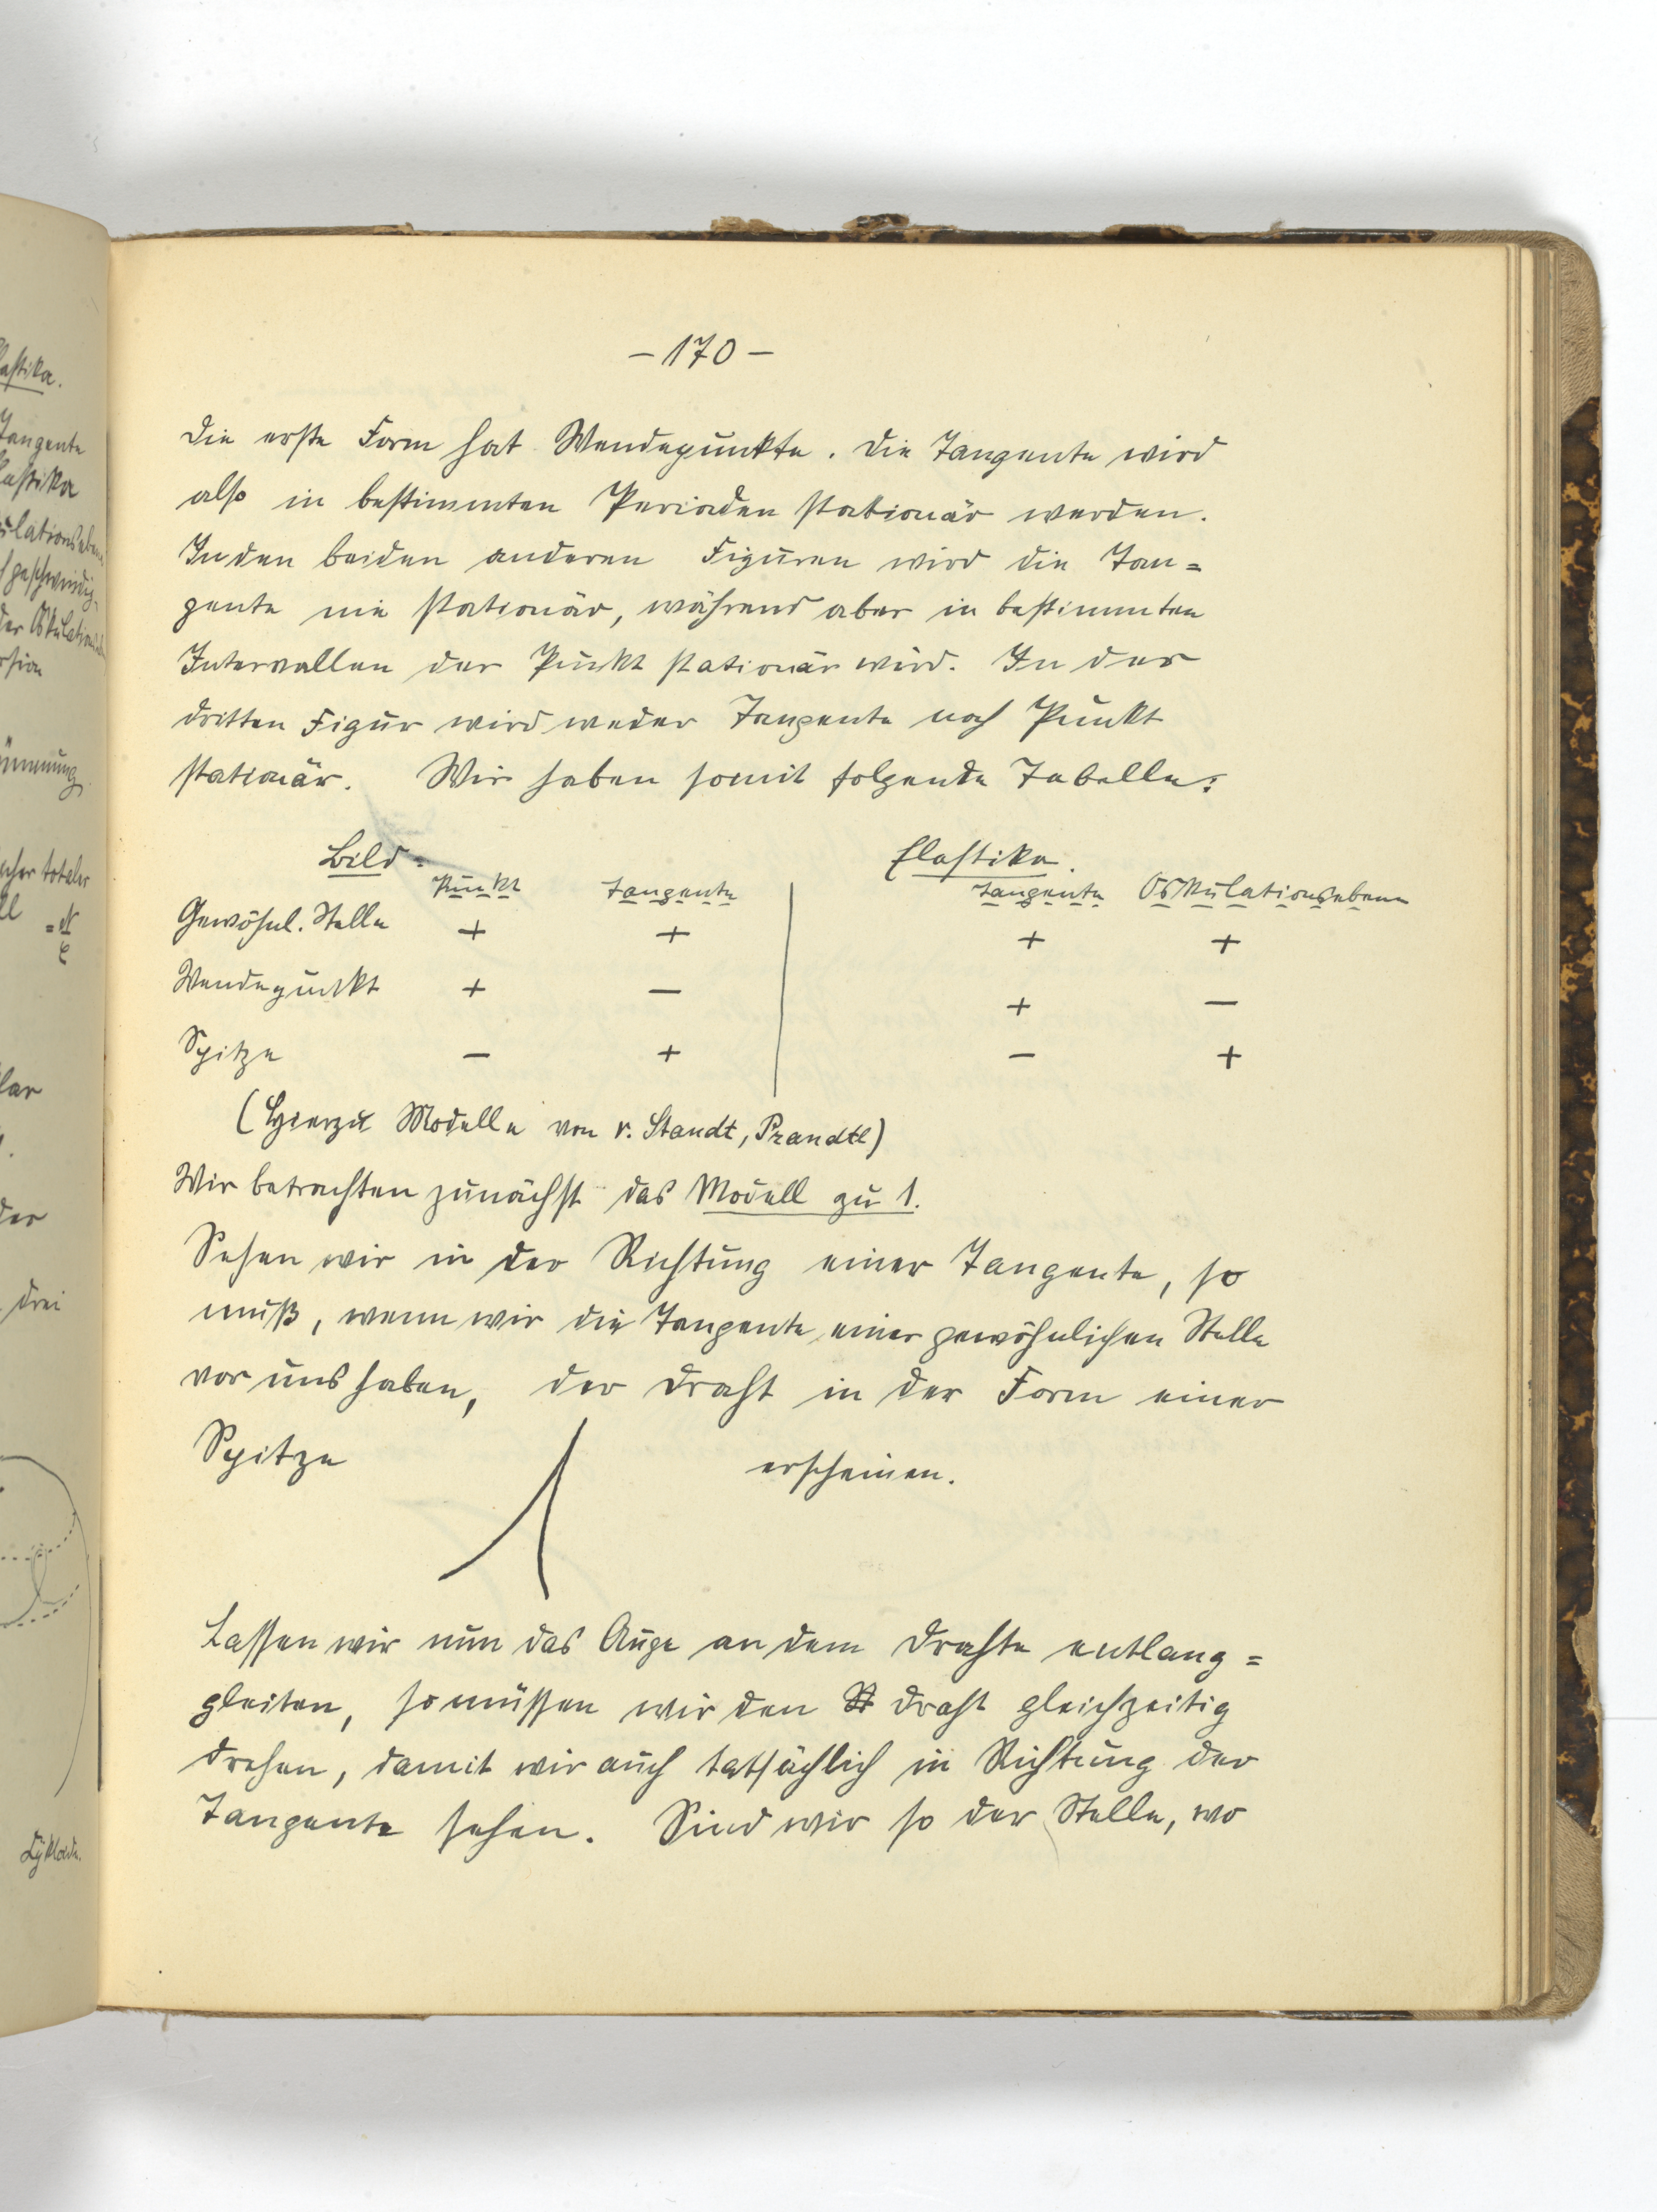 astika.
Tangente
lastika
kulationsebene
geschwindig-
der Oskulations
rsion
ümmung
cher totaler
der
drei
Zykloide.
– 170 –
Die erste Form hat Wendepunkte. Die Tangente wird
also in bestimmten Perioden stationär werden.
In den beiden anderen Figuren wird die Tan=
gente nie stationär, während aber in bestimmten
Intervallen der Punkt stationär wird. In der
dritten Figur wird weder Tangente noch Punkt
stationär. Wir haben somit folgende Tabelle:
Bild. Elastika.
Punkt Tangente Tangente Oskulationsebene
Gewöhnl. Stelle + + + +
Wendepunkt + – + –
Spitze – + – +
(Hierzu Modelle von v. Staudt, Prandtl)
Wir betrachten zunächst das Modell zu 1.
Sehen wir in der Richtung einer Tangente, so
muß, wenn wir die Tangente einer gewöhnlichen Stelle
vor uns haben, der Draht in der Form einer
Spitze erscheinen.
Lassen wir nun das Auge an dem Drahte entlang=
gleiten, so müssen wir den Draht gleichzeitig
drehen, damit wir auch tatsächlich in Richtung der
Tangente sehen. Sind wir so der Stelle, wo